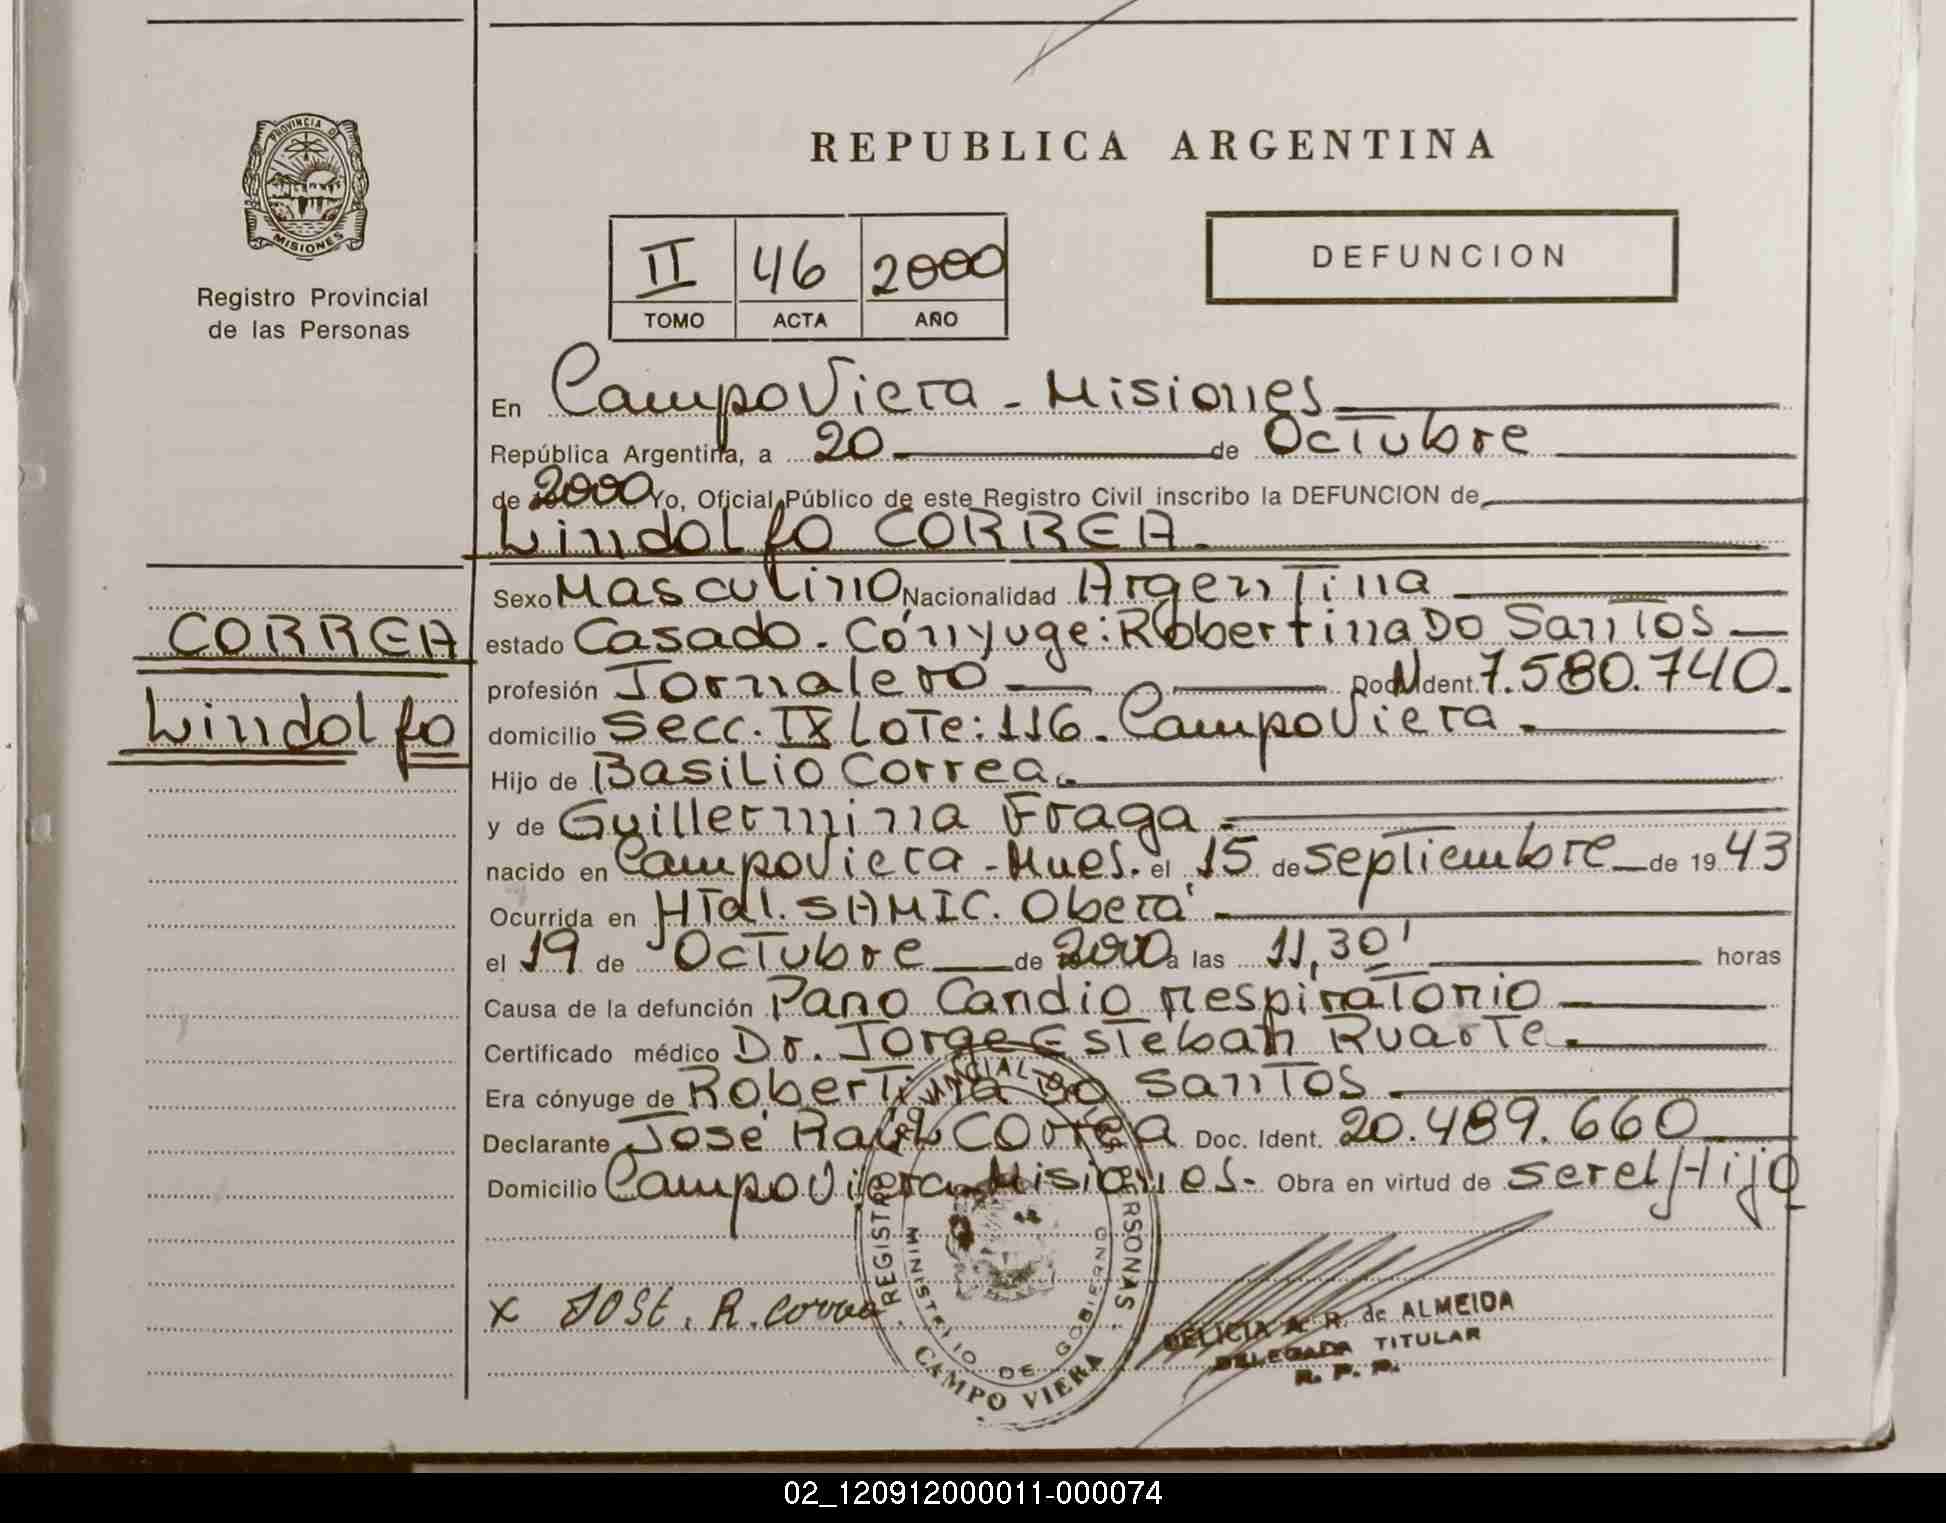 PROVINCIA D
MISIONES
Registro Provincial
de las Personas
REPUBLICA ARGENTINA
II 46 2000
TOMO ACTA AÑO
DEFUNCION
En Campo Viera - Misiones
República Argentina, a 20 de Octubre
de 2000 Yo, Oficial Público de este Registro Civil inscribo la DEFUNCION de
Lindolfo CORREA.
CORREA
Lindolfo
Sexo Masculino Nacionalidad Argentina
estado Casado. Cónyuge: Robertina Do Santos
profesión Jornalero Doc. Ident. 7.580.740.
domicilio Secc. IX Lote: 116. Campo Viera.
Hijo de Basilio Correa.
y de Guillermina Fraga.
nacido en Campo Viera - Mnes. el 15 de septiembre de 1943
Ocurrida en Htal. SAMIC. Oberá
el 19 de Octubre de 2000 a las 11,30' horas
Causa de la defunción Paro Cardio respiratorio
Certificado médico Dr. Jorge Esteban Ruarte.
Era cónyuge de Robertina Do Santos.
Declarante José Raúl Correa Doc. Ident. 20.489.660
Domicilio Campo Viera Misiones. Obra en virtud de ser el Hijo
x JOSE. R. Correa
REGISTRO PROVINCIAL DE LAS PERSONAS
MINISTERIO DE GOBIERNO
CAMPO VIERA
DELICIA A. R. de ALMEIDA
DELEGADA TITULAR
R. P. P.
02_120912000011-000074